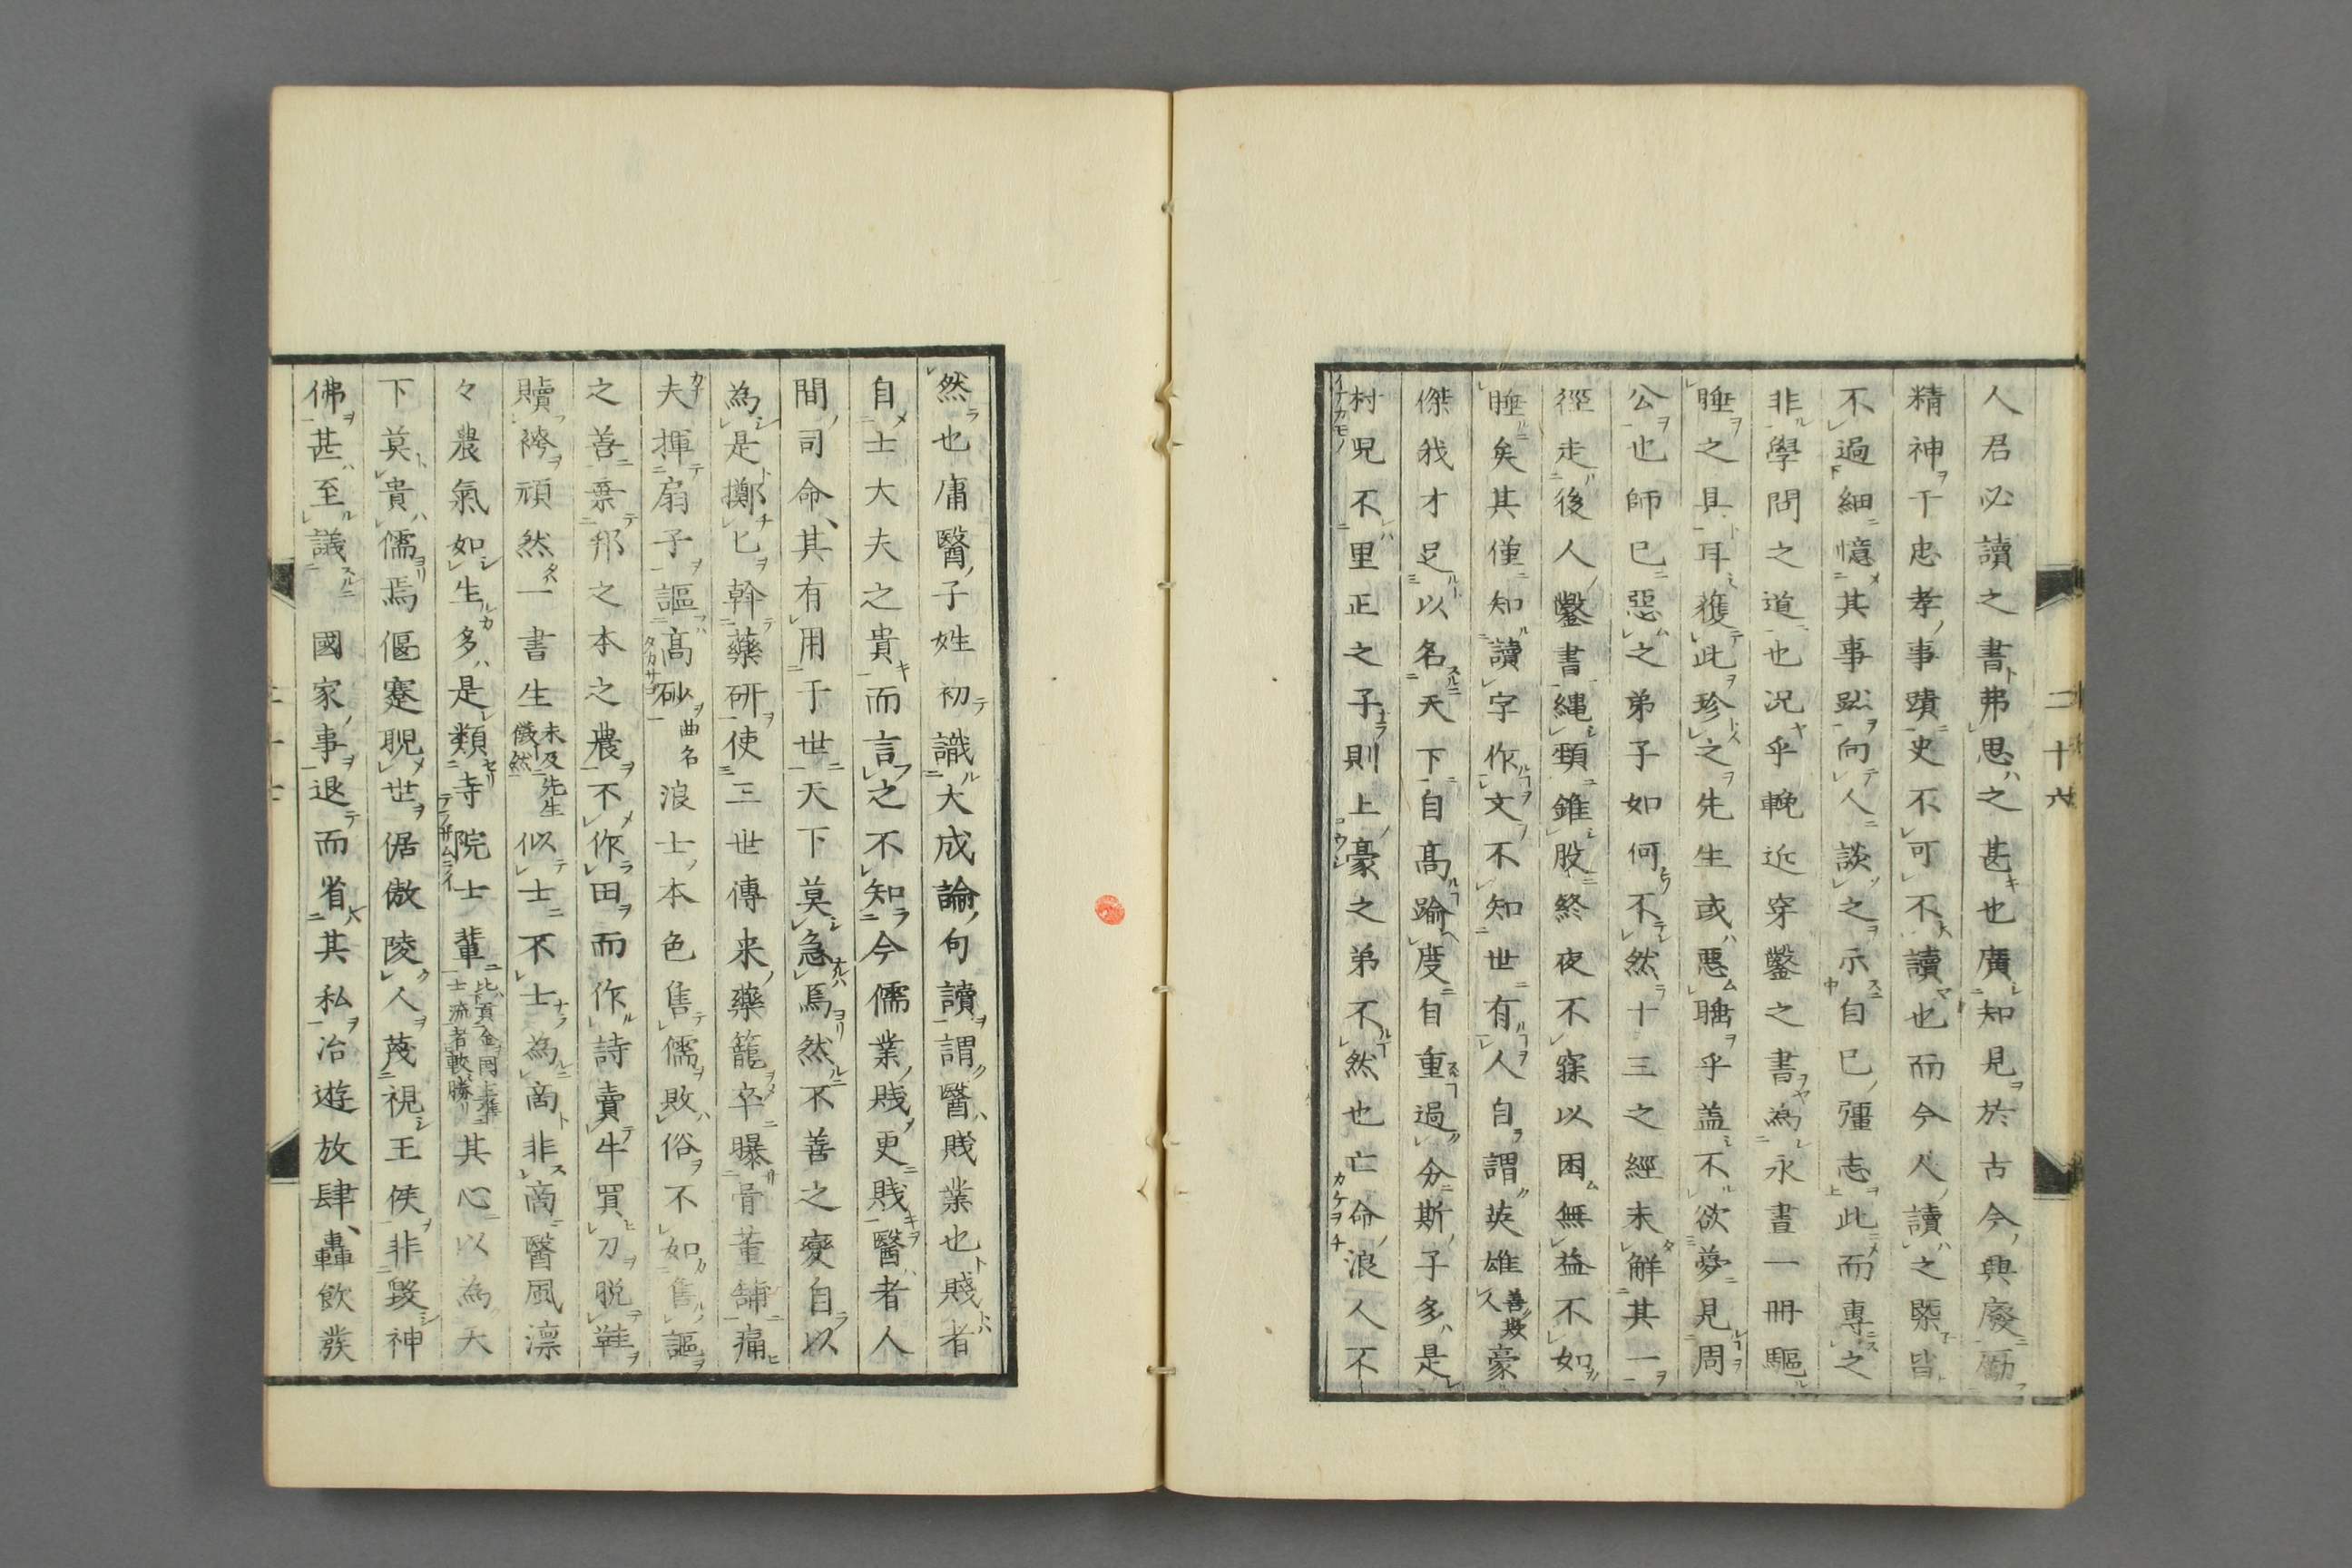 人君必讀之書弗思之甚也廣知見於古今興廢勵
精神于忠孝事蹟史不可不讀也而今人讀之槩皆
不過細憶其事跡向人談之示自己彊志此而專之
非學問之道也况乎輓近穿鑿之書為永晝一冊驅
睡之具耳獲此珍之先生或惡睡乎盖不欲夢見周
公也師已惡之弟子如何不然十三之經未解其一
徑走後人鑿書繩頸錐股終夜不寐以困無益不如
睡矣其僅知讀字作文不知世有人自謂英雄善欺人豪
傑我才足以名天下自高踰度自重過分斯子多是
村兒不里正之子則上豪之弟不然也亡命浪人不
二十六
然也庸醫子姓初識大成論句讀謂醫賤業也賤者
自士大夫之貴而言之不知今儒業賤更賤醫者人
間司命其有用于世天下莫急焉然不善之變自以
為是擲匕幹藥研使三世傳来藥籠卒曝骨董舖痛
夫揮扇子謳高砂曲名浪士本色售儒敗俗不如售謳
之善棄邦之本之農不作田而作詩賣牛買刀脱鞋
贖袴頑然一書生未及先生儼然似士不士為商非商醫風凛
々農氣如生多是類寺院士輩比貢金同士流者較勝其心以為天
下莫貴儒焉偃蹇睨世倨傲陵人蔑視王侯非毀神
佛甚至議國家事退而省其私冶遊放肆轟飲發